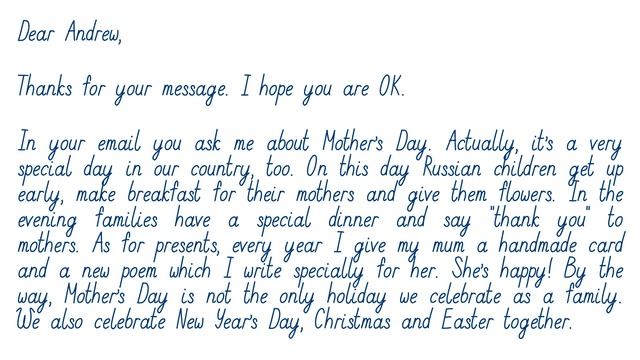 Dear Andrew,
Thanks for your message. I hope you are OK.
In your email you ask me about Mother's Day. Actually, it's a very
special day in our country, too. On this day Russian children get up
early, make breakfast for their mothers and give them flowers. In the
evening families have a special dinner and say "thank you" to
mothers. As for presents, every year I give my mum a handmade card
and a new poem which I write specially for her. She's happy! By the
way, Mother's Day is not the only holiday we celebrate as a family.
We also celebrate New Year's Day, Christmas and Easter together.